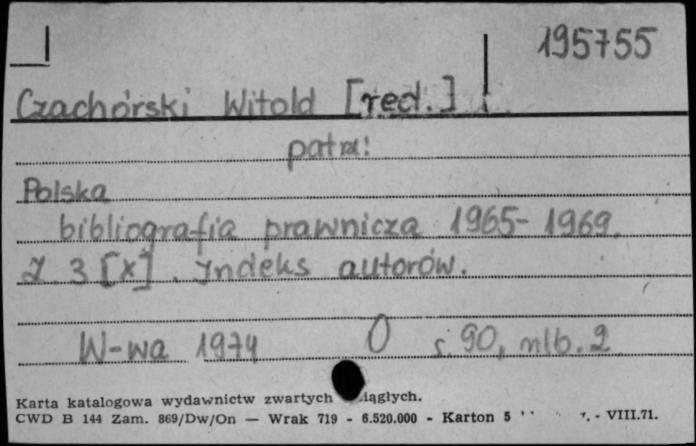 195755
Czachórski Witold [red.]
patrz:
Polska
bibliografia prawnicza 1965-1969.
Z. 3 [X]. Indeks autorów.
W-wa 1974 O s. 90, nlb. 2
Karta katalogowa wydawnictw zwartych ciągłych.
CWD B 144 Zam. 869/Dw/On — Wrak 719 - 6.520.000 - Karton 5 - VIII.71.